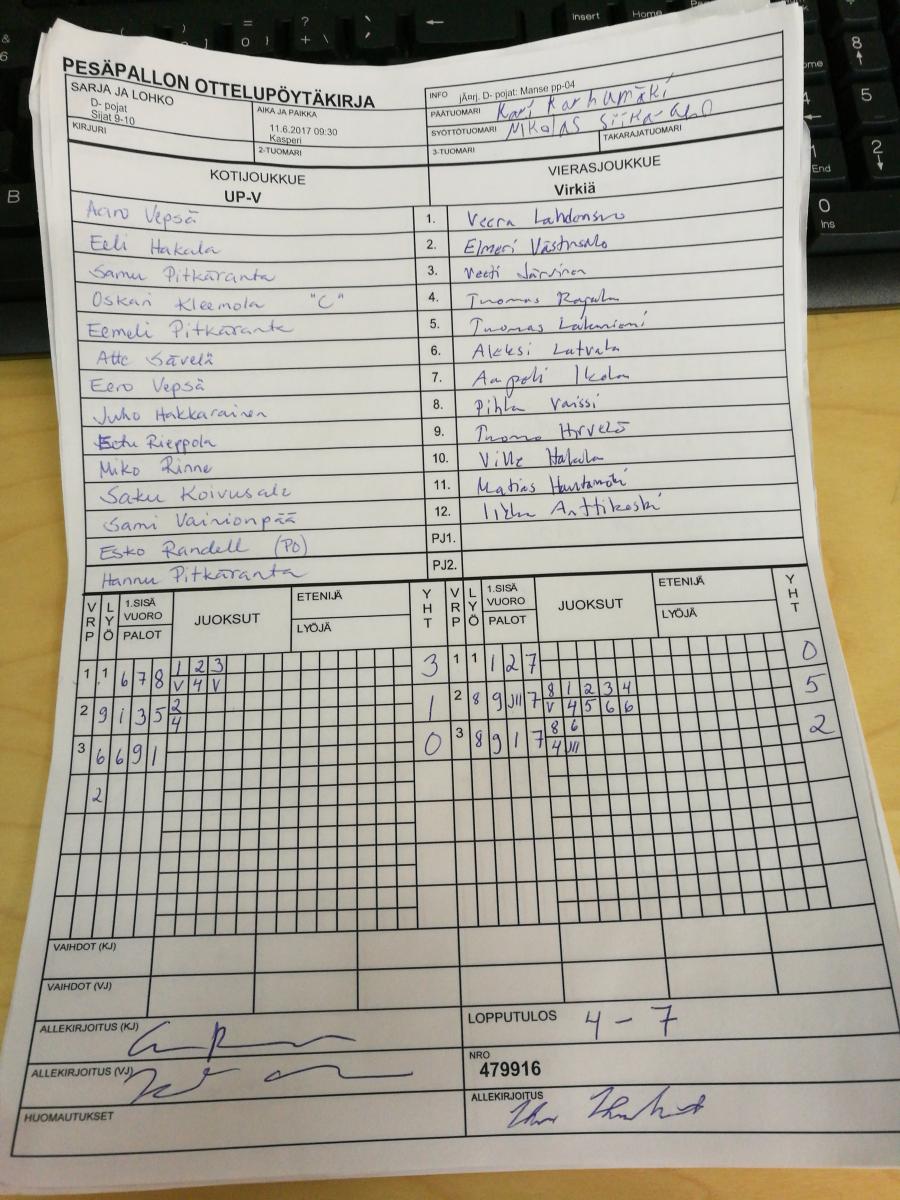 PESÄPALLON OTTELUPÖYTÄKIRJA
SARJA JA LOHKO
D- pojat
Sijat 9-10
AIKA JA PAIKKA
11.6.2017 09:30
Kasperi
INFO jÄ¤rj. D- pojat: Manse pp-04
PÄÄTUOMARI Kari Karhumäki
SYÖTTÖTUOMARI Nikolas Siika-aho
TAKARAJATUOMARI
KIRJURI
2-TUOMARI
3-TUOMARI
KOTIJOUKKUE
UP-V
VIERASJOUKKUE
Virkiä
Aaro Vepsä 1. Veera
Eeli Hakala 2. Elmeri Västinsalo
Samu Pitkäranta 3. Veeti Järvinen
Oskari Kleemola "C" 4. Tuomas Rajala
Eemeli Pitkäranta 5. Tuomas Lakaniemi
Atte Sävelä 6. Aleksi Latvala
Eero Vepsä 7. Aapeli Ikola
Juho Hakkarainen 8. Pihla Vaissi
Eetu Rieppola 9. Tuomo Hirvelä
Miko Rinne 10. Ville Hakala
Saku Koivusalo 11. Matias Hautamäki
Sami Vainionpää 12. Iikka Anttikoski
Esko Randell (PO) PJ1.
Hannu Pitkäranta PJ2.
VRP LYÖ 1.SISÄ VUORO PALOT JUOKSUT ETENIJÄ LYÖJÄ YHT VRP LYÖ 1.SISÄ VUORO PALOT JUOKSUT ETENIJÄ LYÖJÄ YHT
1 1 6 7 8 1 2 3 3 1 1 1 2 7 0
V 4 V
2 9 1 3 5 2 1 2 8 9 III 7 8 1 2 3 4 5
4 V 4 5 6 6
3 6 6 9 1 0 3 8 9 1 7 8 6 2
4 III
2
VAIHDOT (KJ)
VAIHDOT (VJ)
ALLEKIRJOITUS (KJ)
LOPPUTULOS 4 - 7
ALLEKIRJOITUS (VJ)
NRO
479916
HUOMAUTUKSET
ALLEKIRJOITUS